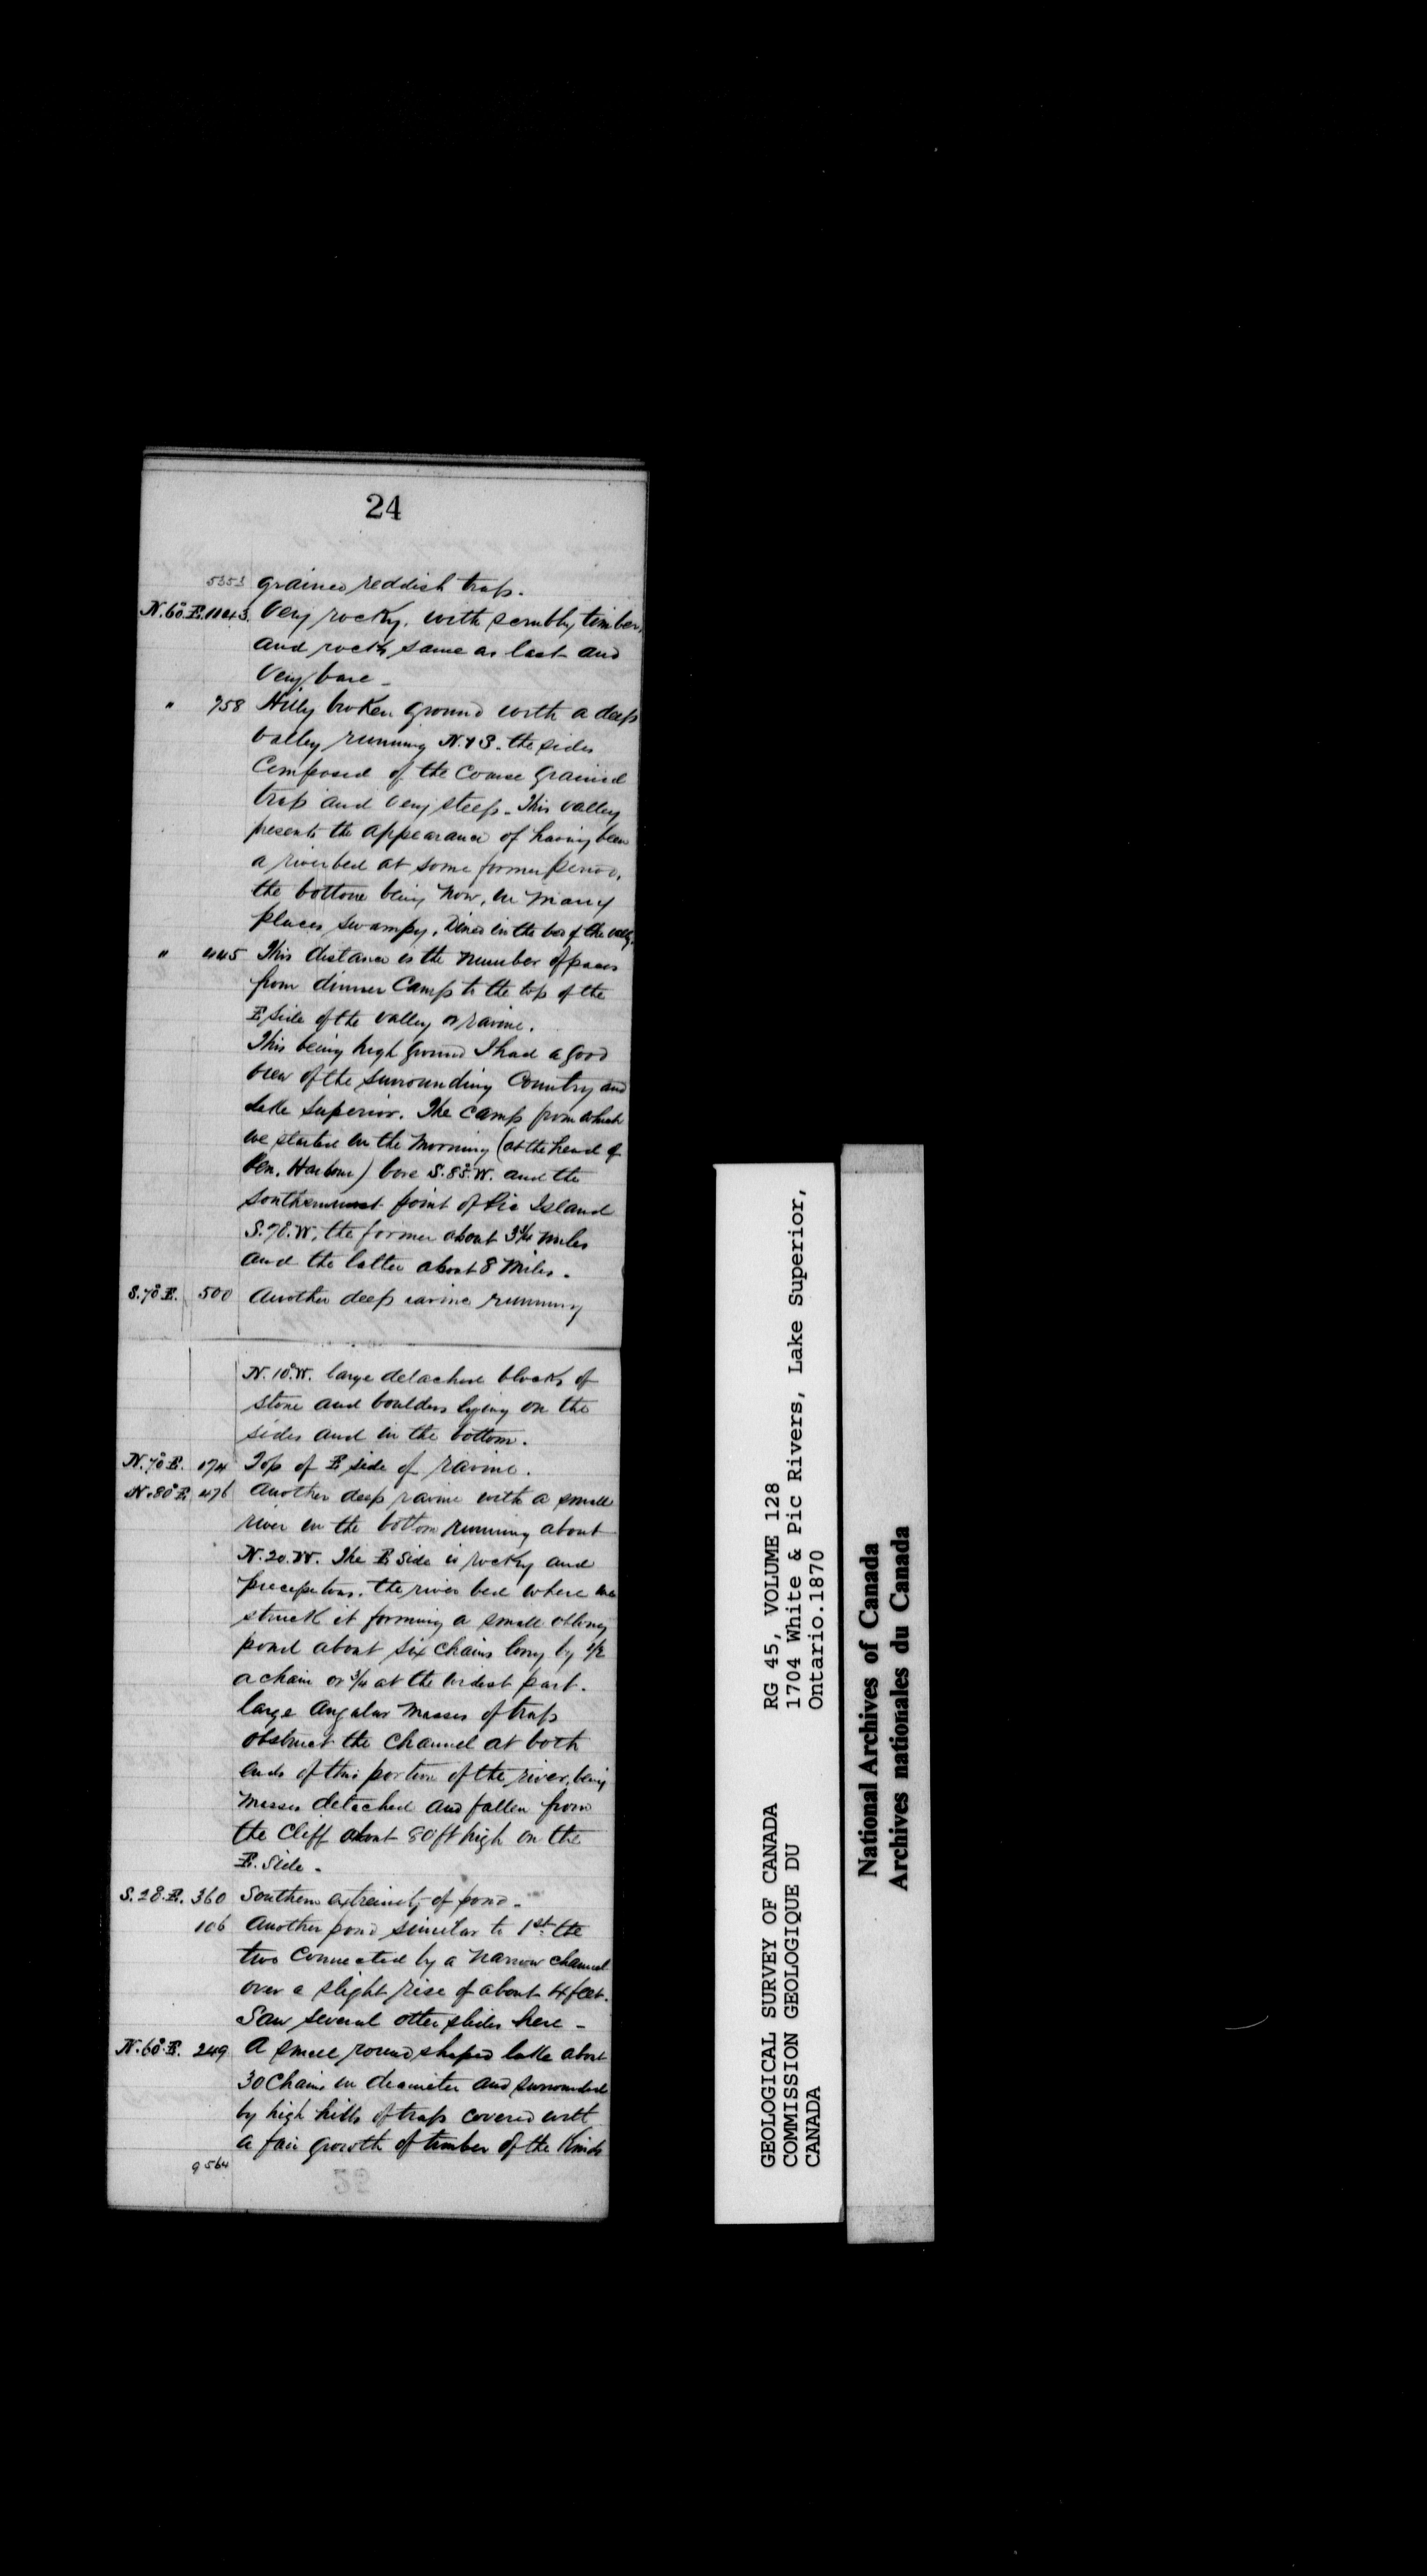 24
5353 grained reddish trap.
N.60°E. 1143. Very rocky. with scrubby timber,
and rock, same as last and
very bare -
" 758 Hilly broken ground with a deep
valley running N. & S. the sides
Composed of the coarse grained
trap and very steep. This valley
presents the appearance of having been
a river bed at some former period,
the bottom being now, in many
places swampy. Dined in the bed of the valley.
" 445 This distance is the number of paces
from dinner Camp to the top of the
E side of the valley or ravine.
This being high ground I had a good
view of the surrounding Country and
Lake Superior. The camp from which
we started in the morning (at the head of
Pen. Harbour) bore S.85°.W. and the
southernmost point of Pic Island
S.78°.W, the former about 3¼ miles
and the latter about 8 miles.
S.70°E. 500 Another deep ravine running
N.10°.W. large detached blocks of
stone and boulders lying on the
sides and in the bottom.
N.70°E. 174 Top of E side of ravine.
N.80°E. 476 Another deep ravine with a small
river in the bottom running about
N.20.W. The E side is rocky and
precipitous. the river bed where we
struck it forming a small oblong
pond about six chains long by 1/2
a chain or 3/4 at the widest part.
large angular masses of trap
obstruct the channel at both
ends of this portion of the river, being
masses detached and fallen from
the cliff about 80 ft high on the
E. side -
S.28.E. 360 Southern extremity of pond -
106 Another pond similar to 1st the
two connected by a narrow channel
over a slight rise of about 4 feet.
Saw several otter slides here -
N.60°.E. 249 A small round shaped lake about
30 Chains in diameter and surrounded
by high hills of trap covered with
a fair growth of timber of the kinds
9564
GEOLOGICAL SURVEY OF CANADA
COMMISSION GEOLOGIQUE DU
CANADA
RG 45, VOLUME 128
1704 White & Pic Rivers, Lake Superior,
Ontario.1870
National Archives of Canada
Archives nationales du Canada